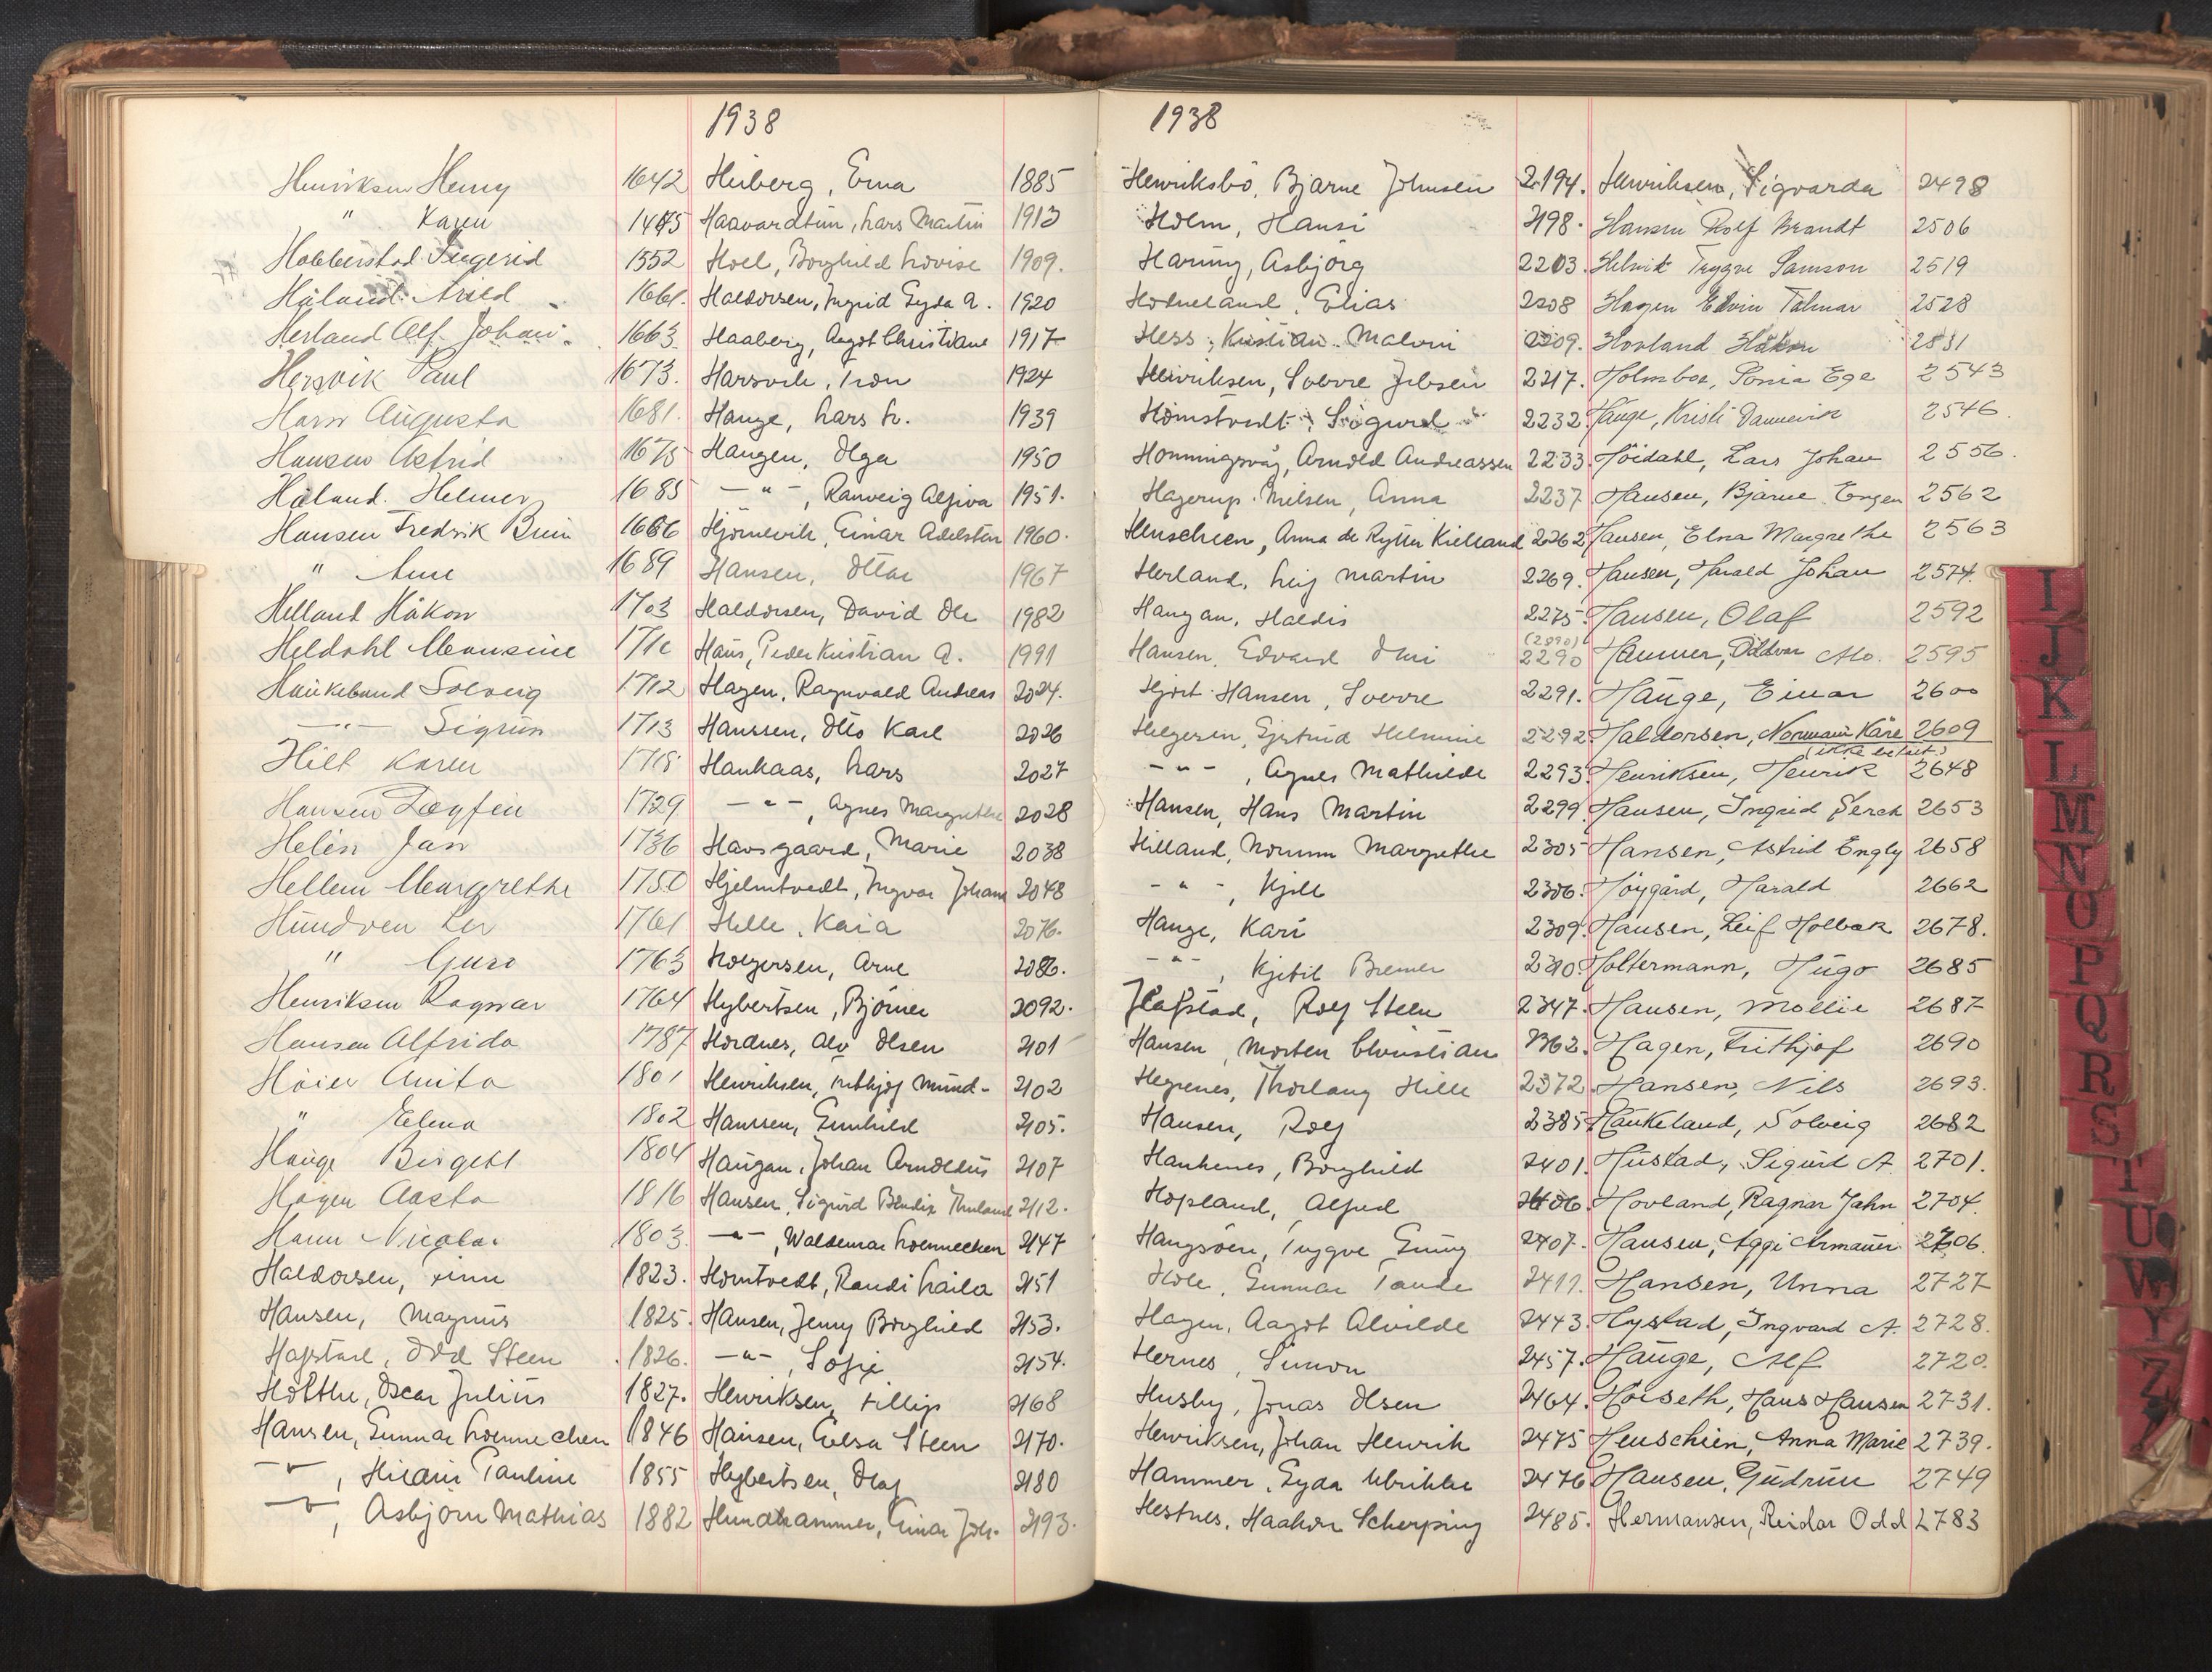 1938
Henriksen Henry 1642
" Karen 1475
Hobberstad Ingerid 1552
Håland Arild 1661
Herland Alf Johan 1663
Hersvik Paul 1673.
Harr Augusta 1681.
Hansen Astrid 1675
Håland. Helmer 1685
Hansen Fredrik Bruun 1686
" Arne 1689
Helland Håkon 1703
Heldahl Monsine 1710
Haukeland Solveig 1712
—"— Sigrun 1713
Hilt Karen 1718
Hansen Dagfin 1729
Helén Jan 1736
Hellem Margrethe 1750
Hundven Ler 1761
" Guro 1763
Henriksen Ragnar 1764
Hansen Alfrida 1787
Höier Anita 1801
" Elena 1802
Hauge Birgeht 1804
Hagen Aasta 1816
Hann Nicolai 1803.
Haldorsen, Finn 1823.
Hansen, Magnus 1825.
Hafstad, Odd Steen 1826.
Holthe, Oscar Julius 1827.
Hansen, Gunnar Loennechen 1846
—"—, Pauline 1855
—"—, Asbjörn Mathias 1882
Heiberg, Erna 1885
Haavardtun, Lars Martin 1913
Hoel, Borghild Lovise 1909.
Haldorsen, Ingrid Gyda A. 1920
Haaberg, Aagot Christiane 1917
Harsvik, Tron 1924
Hauge, Lars L. 1939
Haugen, Olga 1950
—"—, Ranveig Alfiva 1951.
Hjörnevik, Einar Adelsten 1960.
Hansen, Ottar 1967
Haldorsen, David Ole 1982
Haus, Peder Kristian A. 1991
Hagen, Ragnvald Andreas 2024.
Hanssen, Otto Karl 2026
Haukaas, Lars 2027
—"—, Agnes Margrethe 2028
Havsgaard, Marie 2038
Hjelmtvedt, Ingvar Johann 2048
Helle, Kaia 2076.
Holgersen, Arne 2086.
Hybertsen, Björner 2092.
Hordnes, Alv Olsen 2101
Henriksen, Fritjof Mund- 2102
Hanssen, Gunhild 2105.
Haugan, Johan Arnoldus 2107
Hansen, Sigurd Bendix Thuland 2112.
—"—, Waldemar Loennechen 2147
Homtvedt, Randi Laila 2151
Hansen, Jenny Borghild 2153.
—"—, Sofie 2154.
Henriksen, Fillip 2168
Hansen, Elsa Steen 2170.
Hybertsen, Olaf 2180
Hundhammer, Einar Joh. 2193.
1938
Henriksbö, Bjarne Johnsen 2194.
Holm, Hansi 2198.
Haring, Asbjörg 2203.
Hodneland, Elias 2208
Hess, Kristian Malvin 2209.
Henriksen, Sverre Jebsen 2217.
Homstvedt, Sigurd 2232.
Honningsvåg, Arnold Andreassen 2233.
Hagerup-Nilsen, Anna 2237
Henschien, Anna de Rytter Kielland 2262
Herland, Leif Martin 2269.
Haugan, Haldis 2275.
Hansen, Edvard 2290
Hjort-Hansen, Sverre 2291.
Helgesen, Gjertrud Helmine 2292.
—"—, Agnes Mathilde 2293.
Hansen, Hans Martin 2299.
Hilland, Norunn Margrethe 2305
—"—, Kjell 2306.
Hauge, Kari 2309.
—"—, Kjetil Bremer 2310.
Hafstad, Rolf Steen 2347.
Hansen, Morten Christian 2362.
Hegrenes, Thorlaug Hille 2372.
Hansen, Rolf 2385
Haukenes, Borghild 2401.
Hopland, Alfred 2406.
Haugsöen, Trygve Gunny 2407.
Hole, Gunnar Tande 2411.
Hagen, Aagot Alvilde 2443.
Hernes, Simon 2457.
Husby, Jonas Olsen 2464.
Henriksen, Johan Henrik 2475
Hammer, Gyda Ulrikke 2476
Hestnes, Haakon Scherping 2485.
Henriksen, Sigvarda 2498
Hansen Rolf Brandt 2506
Helvik Tryggve Samson 2519
Hagen Edvin Talmar 2528
Hovland Håkon 2531
Holmboe, Sonia Ege 2543
Hauge, Kristi Dannevik 2546.
Höidahl, Lars Johan 2556.
Hansen, Bjarne Engen 2562
Hansen, Elna Margrethe 2563
Hansen, Harald Johan 2574.
Hansen, Olaf 2592
Hammer, Oddvar Alo. 2595
Hauge, Einar 2600
Haldorsen, Normann Kåre 2609
(ikke betalt)
Henriksen, Henrik 2648
Hansen, Ingrid Serck 2653
Hansen, Astrid Engly 2658
Höygård, Harald 2662
Hansen, Leif Holbæk 2678.
Holtermann, Hugo 2685
Hansen, Mollie 2687
Hagen, Frithjof 2690
Hansen, Nils 2693.
Haukeland, Solveig 2682
Hustad, Sigurd A. 2701.
Hovland, Ragnar Jahn 2704.
Hansen, Aggi Armauer 2706.
Hansen, Unna 2727
Hystad, Ingvard A. 2728.
Hauge, Alf 2720.
Höiseth, Hans Hansen 2731.
Henschien, Anna Marie 2739.
Hansen, Gudrun 2749
Hermansen, Reidar Odd 2783
I
J
K
L
M
N
O
P
Q
R
S
T
U
W
Y
Z